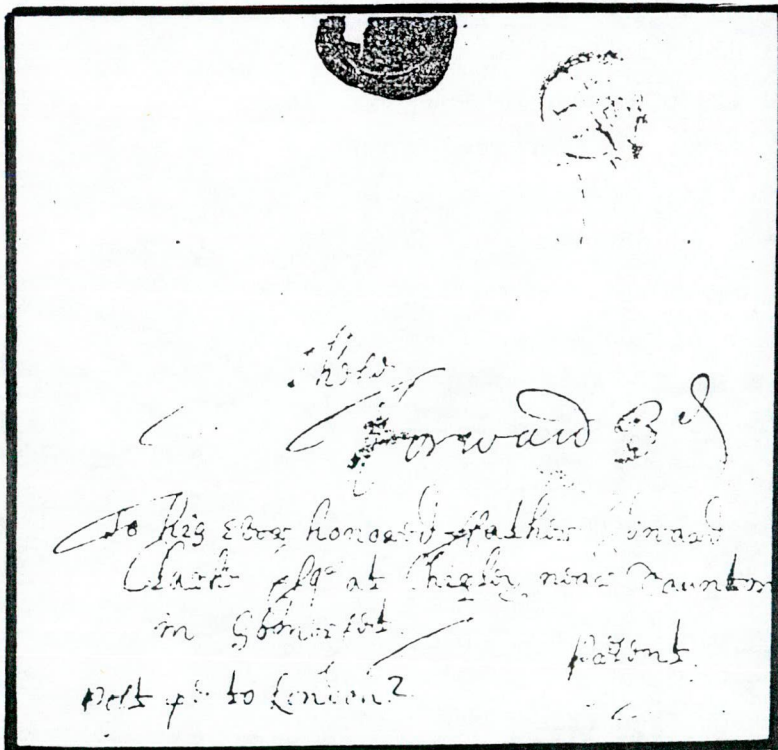 These
fforward 3d
To his Ever honored ffather Edward
Clark Esqr at neare Taunton
in Somersett
post pd to London 2